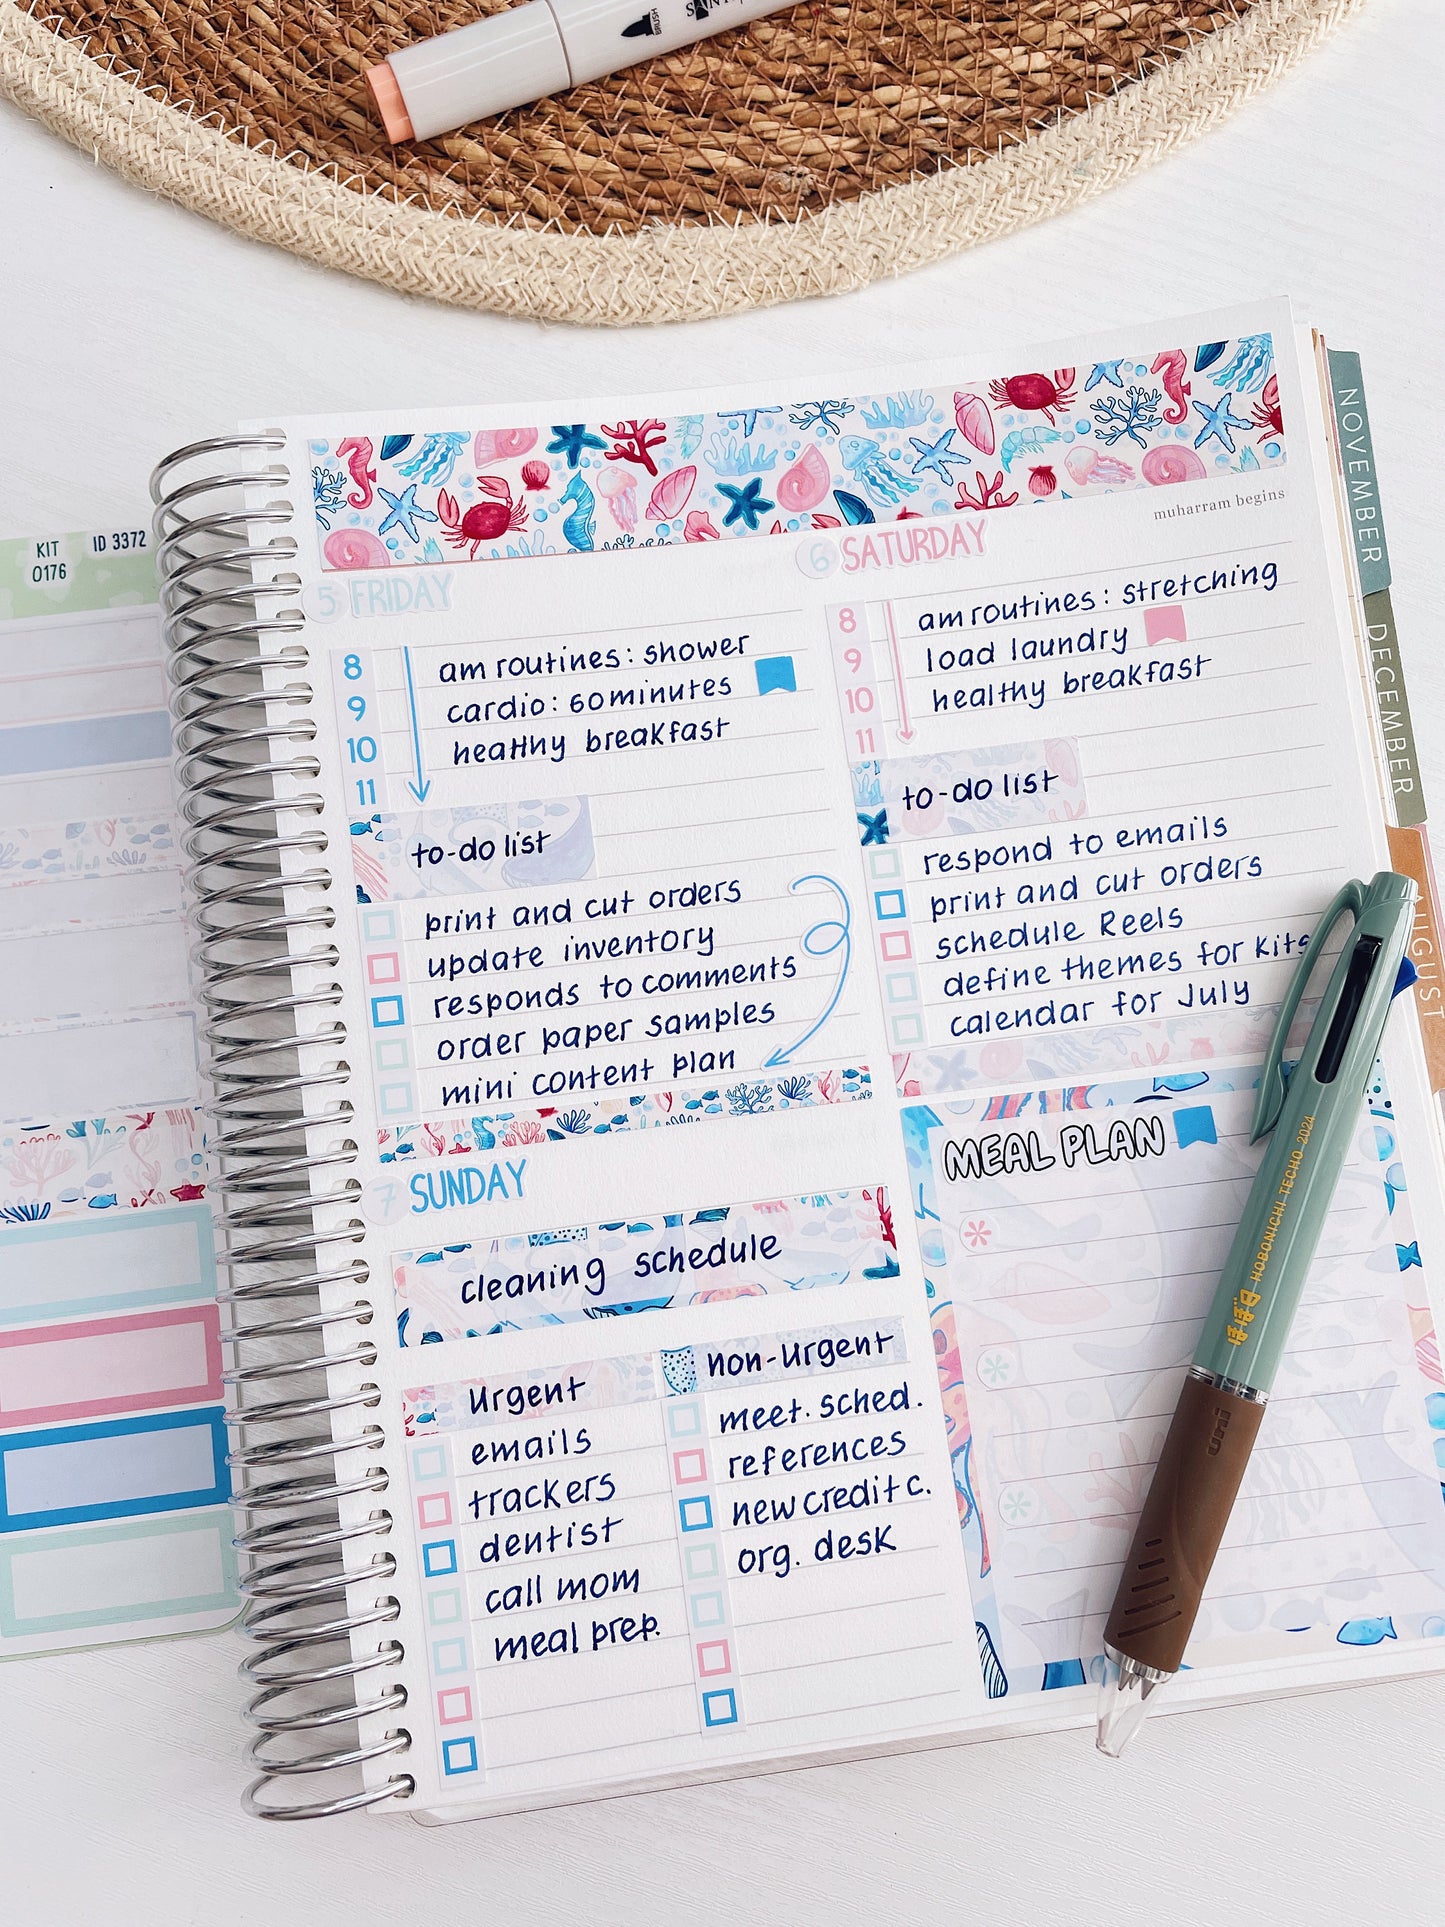 BRUSH
KIT
0176
ID 3372
muharram begins
5 FRIDAY
8
9
10
11
am routines: shower
cardio: 60minutes
healthy breakfast
to-do list
print and cut orders
update inventory
responds to comments
order paper samples
mini content plan
6 SATURDAY
8
9
10
11
am routines: stretching
load laundry
healthy breakfast
to-do list
respond to emails
print and cut orders
schedule Reels
define themes for kits
calendar for July
7 SUNDAY
cleaning schedule
urgent
emails
trackers
dentist
call mom
meal prep.
non-urgent
meet. sched.
references
new credit c.
org. desk
MEAL PLAN
NOVEMBER
DECEMBER
AUGUST
HOBONICHI TECHO 2024
uni